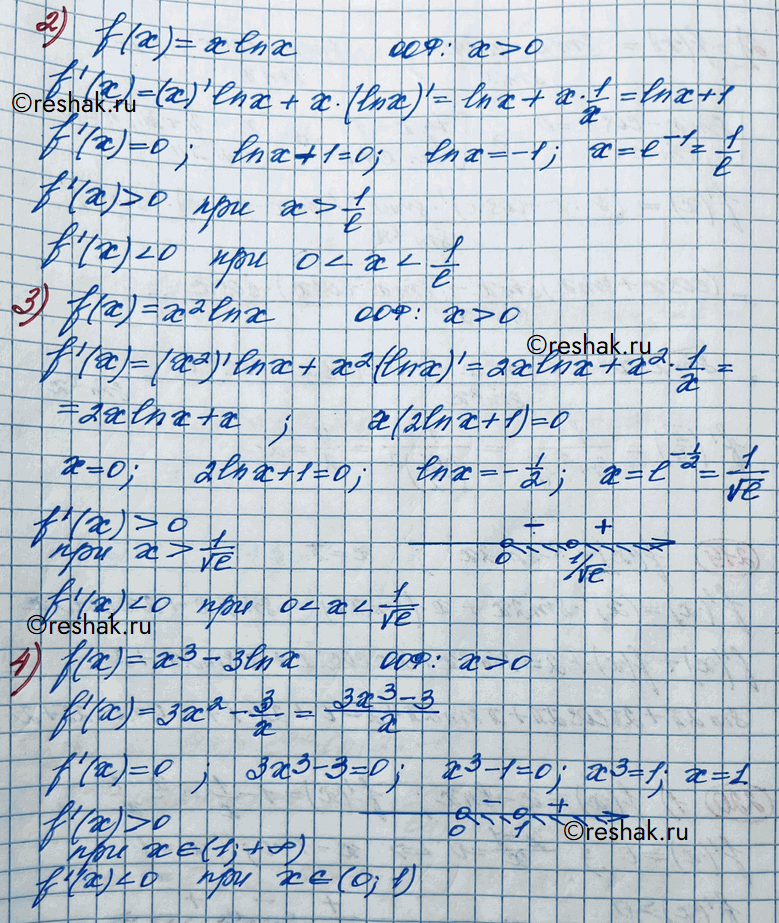 2) f(x) = x ln x ООФ: x > 0
f'(x) = (x)' ln x + x · (ln x)' = ln x + x · 1/x = ln x + 1
©reshak.ru
f'(x) = 0 ; ln x + 1 = 0; ln x = -1; x = e^{-1} = 1/e
f'(x) > 0 при x > 1/e
f'(x) < 0 при 0 < x < 1/e
3) f(x) = x² ln x ООФ: x > 0
©reshak.ru
f'(x) = (x²)' ln x + x² (ln x)' = 2x ln x + x² · 1/x =
= 2x ln x + x ; x(2 ln x + 1) = 0
x = 0; 2 ln x + 1 = 0; ln x = -1/2; x = e^{-1/2} = 1/√e
f'(x) > 0
при x > 1/√e
- +
0 1/√e
f'(x) < 0 при 0 < x < 1/√e
©reshak.ru
4) f(x) = x³ - 3 ln x ООФ: x > 0
f'(x) = 3x² - 3/x = (3x³ - 3)/x
f'(x) = 0 ; 3x³ - 3 = 0; x³ - 1 = 0; x³ = 1; x = 1
f'(x) > 0
- +
0 1
©reshak.ru
при x ∈ (1; +∞)
f'(x) < 0 при x ∈ (0; 1)